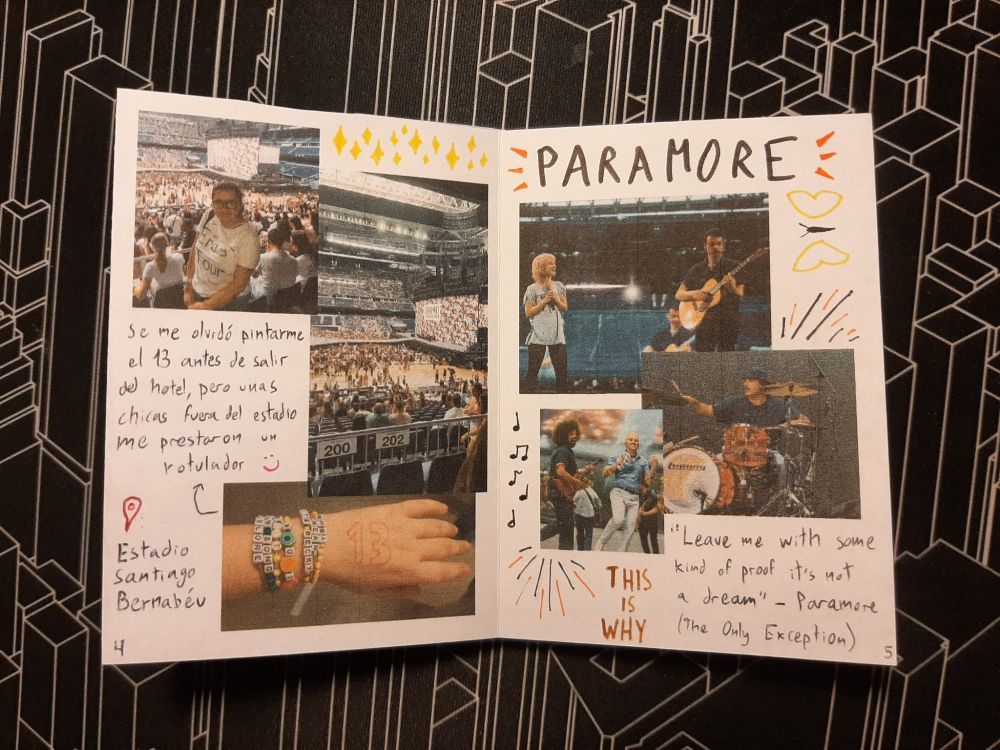 Eras
Tour
200
202
Se me olvidó pintarme
el 13 antes de salir
del hotel, pero unas
chicas fuera del estadio
me prestaron un
rotulador
13
Estadio
Santiago
Bernabéu
4
PARAMORE
Ludwig
THIS
IS
WHY
"Leave me with some
kind of proof it's not
a dream" - Paramore
(The Only Exception)
5